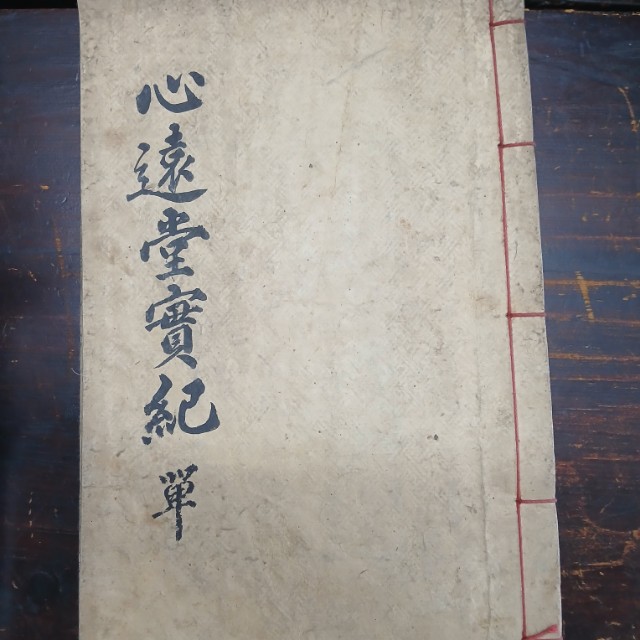 心遠堂實紀 單